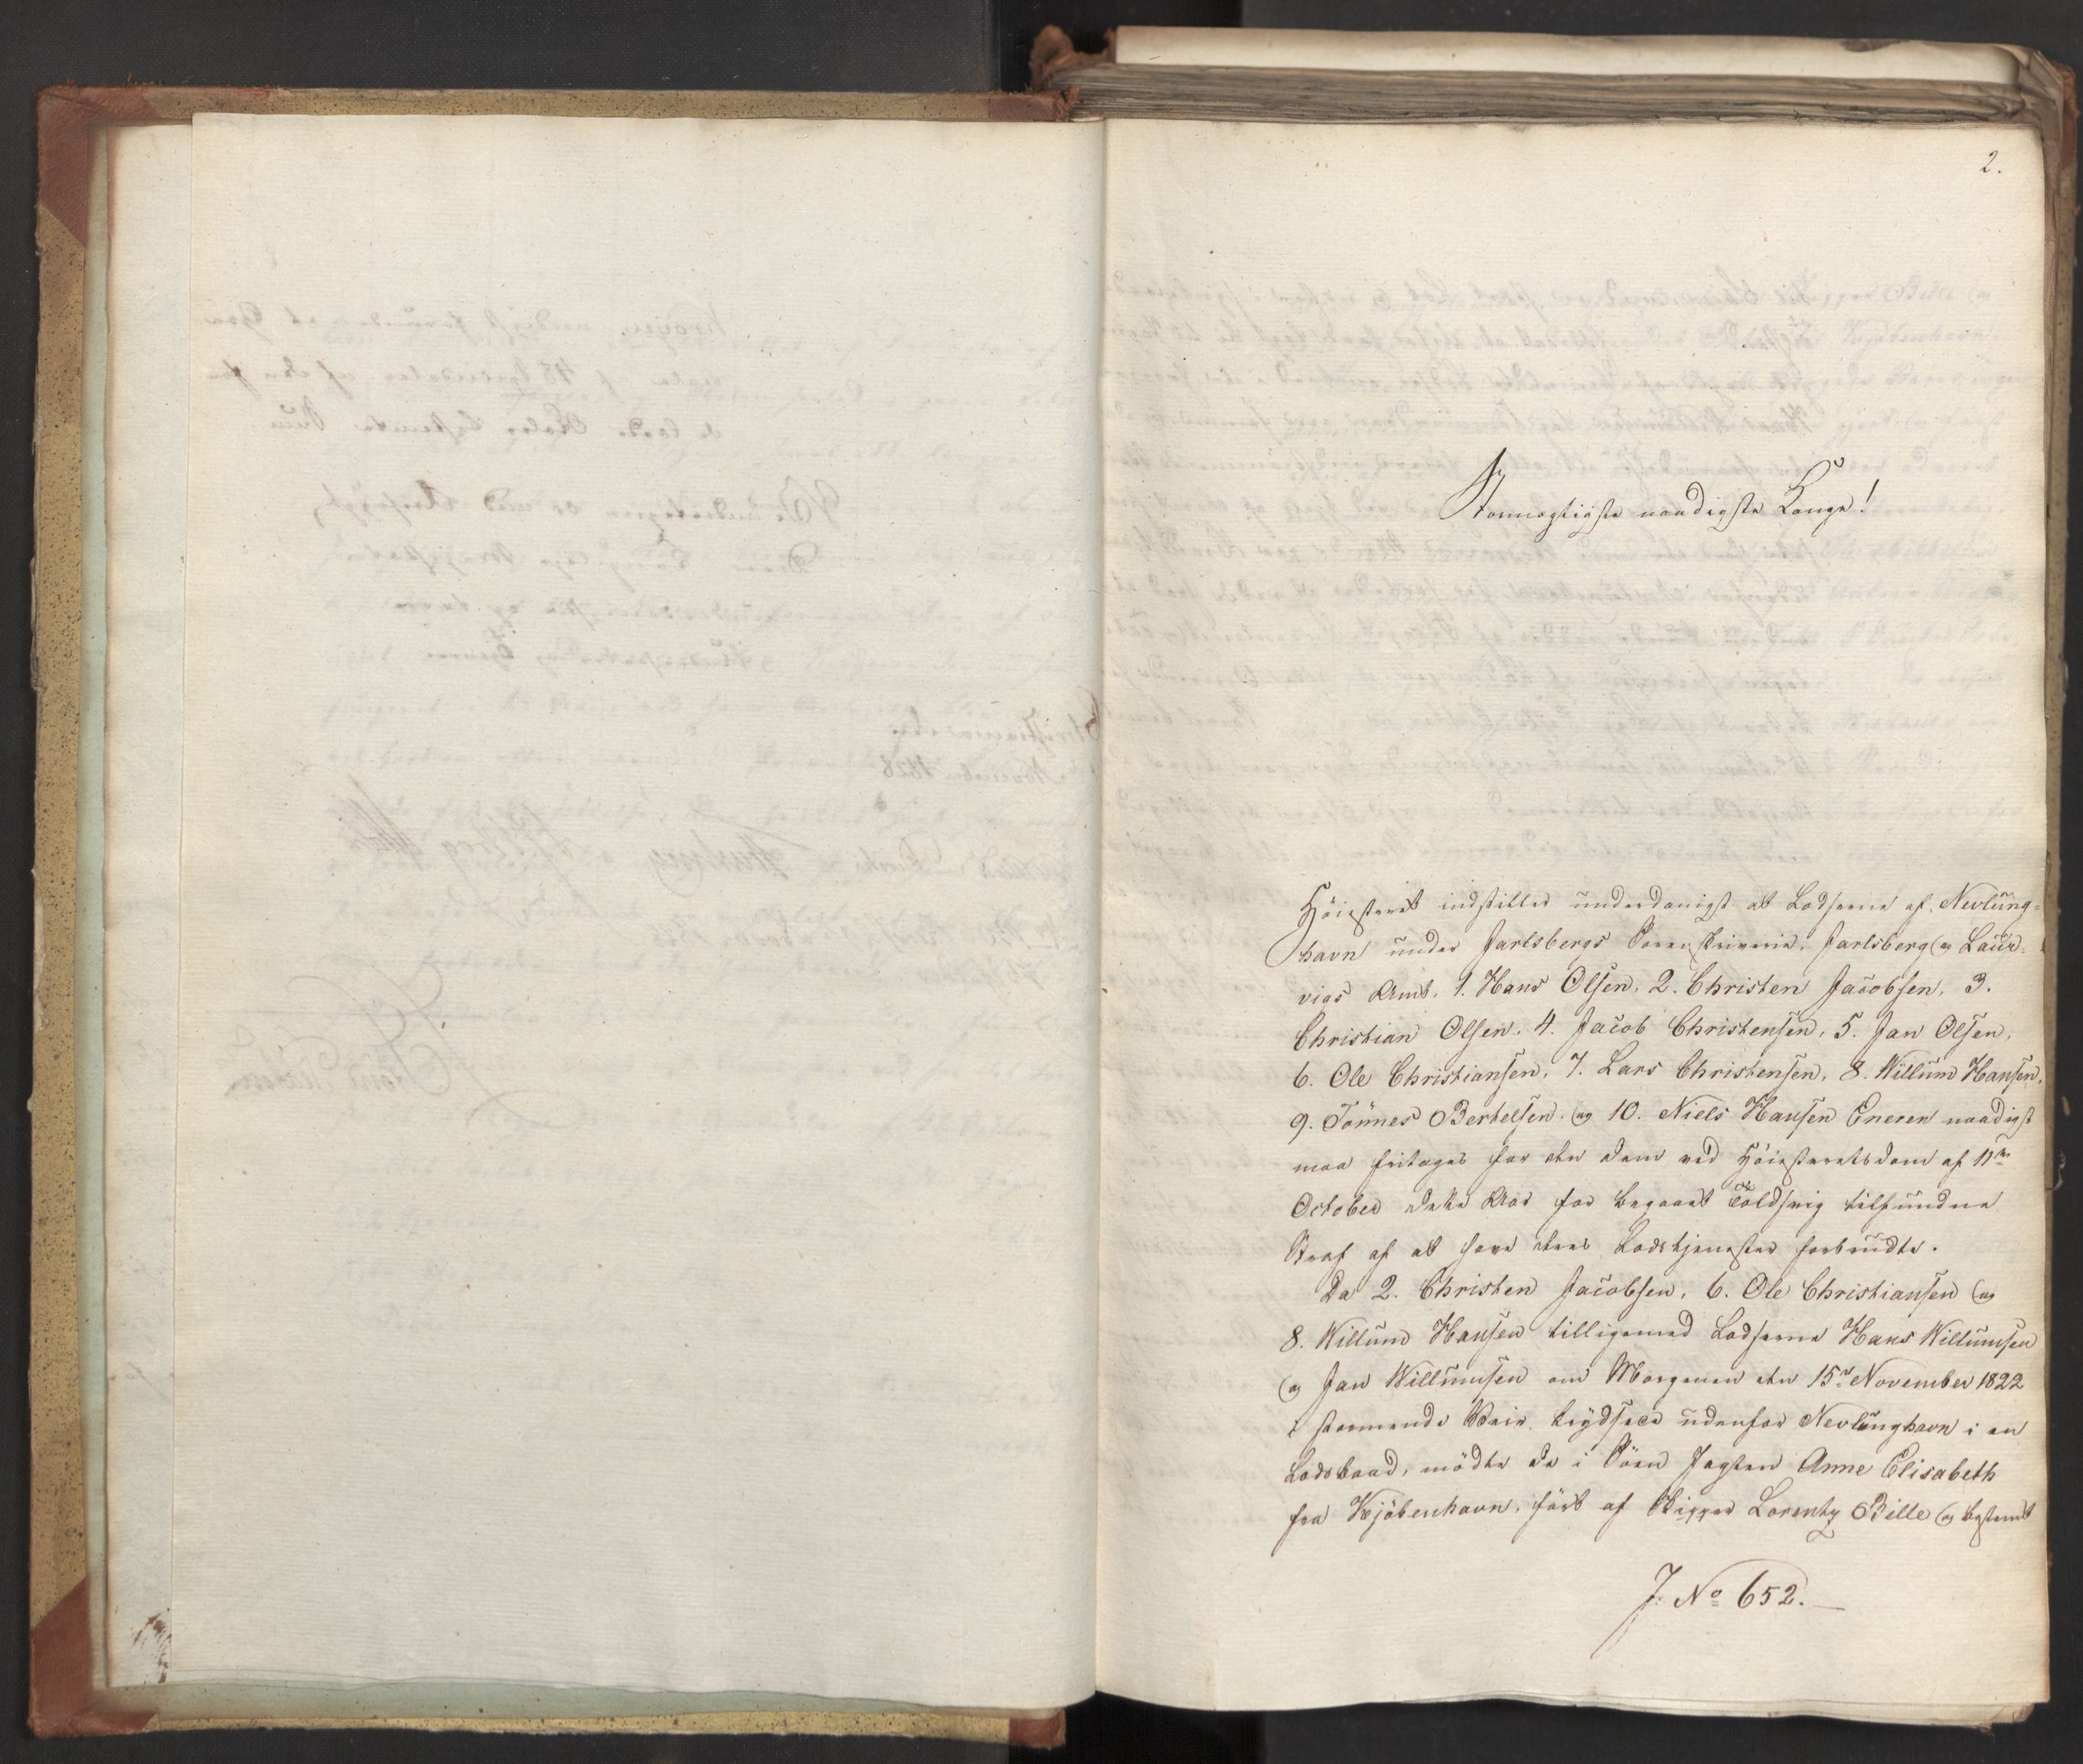 2.
Stormægtigste naadigste Konge!
Höiesteret indstiller underdanigst at Lodserne af Nevlung=
havn under Jarlsbergs Sorenskriverie, Jarlsberg og Laur=
vigs Amt, 1. Hans Olsen, 2. Christen Jacobsen, 3.
Christian Olsen, 4. Jacob Christensen, 5. Jan Olsen,
6. Ole Christiansen, 7. Lars Christensen, 8. Willum Hansen,
9. Tönnes Bertelsen og 10. Niels Hansen Eneren naadigst
maa fritages for den dem ved Höiesteretsdom af 11te
October dette Aar for begaaet Toldsvig tilfundne
Straf af at have deres Lodstjenester forbrudte.
Da 2. Christen Jacobsen, 6. Ole Christiansen og
8. Willum Hansen tilligemed Lodserne Hans Willumsen
og Jan Willumsen om Morgenen den 15de November 1822
i stormende Veir krydsede udenfor Nevlunghavn i en
Lodsbaad, mödte de i Söen Jagten Anne Elisabeth
fra Kjöbenhavn, fört af Skipper Lorentz Bille og bestemt
J. No 652.